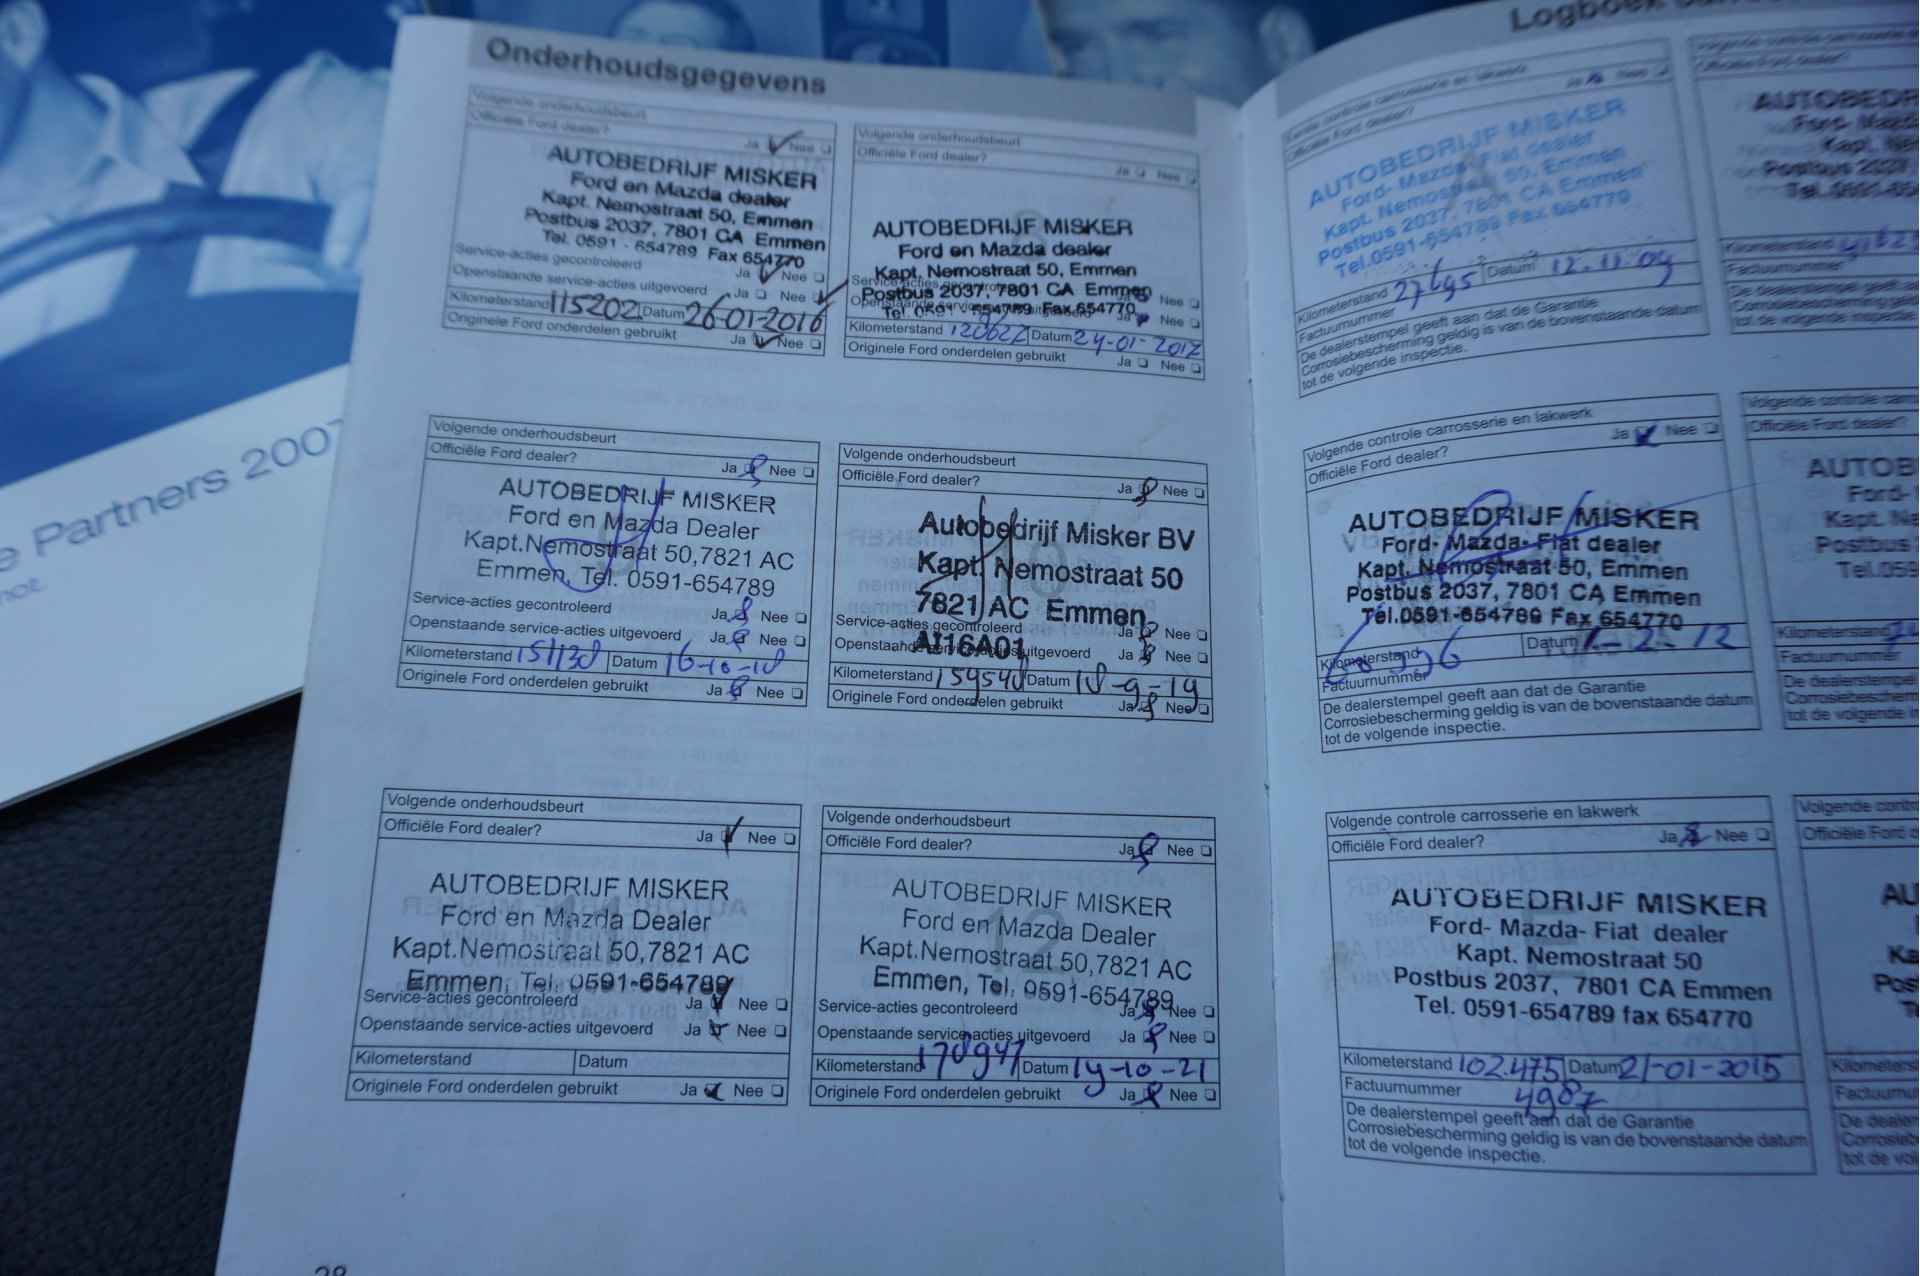 Partners 2007
Onderhoudsgegevens
Volgende onderhoudsbeurt
Officiële Ford dealer?
Ja Nee
AUTOBEDRIJF MISKER
Ford en Mazda dealer
Kapt. Nemostraat 50, Emmen
Postbus 2037, 7801 CA Emmen
Tel. 0591 - 654789 Fax 654770
Service-acties gecontroleerd Ja Nee
Openstaande service-acties uitgevoerd Ja Nee
Kilometerstand 115202 Datum 26-01-2016
Originele Ford onderdelen gebruikt Ja Nee
Volgende onderhoudsbeurt
Officiële Ford dealer?
Ja Nee
AUTOBEDRIJF MISKER
Ford en Mazda dealer
Kapt. Nemostraat 50, Emmen
Postbus 2037, 7801 CA Emmen
Tel. 0591 - 654789 Fax 654770
Kilometerstand Datum 24-01-2017
Originele Ford onderdelen gebruikt Ja Nee
Volgende onderhoudsbeurt
Officiële Ford dealer? Ja Nee
AUTOBEDRIJF MISKER
Ford en Mazda Dealer
Kapt.Nemostraat 50,7821 AC
Emmen, Tel. 0591-654789
Service-acties gecontroleerd Ja Nee
Openstaande service-acties uitgevoerd Ja Nee
Kilometerstand 151138 Datum 16-10-18
Originele Ford onderdelen gebruikt Ja Nee
Volgende onderhoudsbeurt
Officiële Ford dealer? Ja Nee
10
Autobedrijf Misker BV
Kapt. Nemostraat 50
7821 AC Emmen
AI16A01
Service-acties gecontroleerd Ja Nee
Openstaande service-acties uitgevoerd Ja Nee
Kilometerstand 159540 Datum 18-9-19
Originele Ford onderdelen gebruikt Ja Nee
Volgende onderhoudsbeurt
Officiële Ford dealer? Ja Nee
11
AUTOBEDRIJF MISKER
Ford en Mazda Dealer
Kapt.Nemostraat 50,7821 AC
Emmen, Tel. 0591-654789
Service-acties gecontroleerd Ja Nee
Openstaande service-acties uitgevoerd Ja Nee
Kilometerstand Datum
Originele Ford onderdelen gebruikt Ja Nee
Volgende onderhoudsbeurt
Officiële Ford dealer? Ja Nee
12
AUTOBEDRIJF MISKER
Ford en Mazda Dealer
Kapt.Nemostraat 50,7821 AC
Emmen, Tel. 0591-654789
Service-acties gecontroleerd Ja Nee
Openstaande service-acties uitgevoerd Ja Nee
Kilometerstand 170947 Datum 19-10-21
Originele Ford onderdelen gebruikt Ja Nee
Logboek
Eerste controle carrosserie en lakwerk
Officiële Ford dealer? Ja Nee
AUTOBEDRIJF MISKER
Ford- Mazda- Fiat dealer
Kapt. Nemostraat 50, Emmen
Postbus 2037, 7801 CA Emmen
Tel.0591-654789 Fax 654770
Kilometerstand 27695 Datum 12.11.09
Factuurnummer
De dealerstempel geeft aan dat de Garantie
Corrosiebescherming geldig is van de bovenstaande datum
tot de volgende inspectie.
Volgende controle carrosserie en lakwerk
Officiële Ford dealer? Ja Nee
AUTOBEDRIJF MISKER
Ford- Mazda- Fiat dealer
Kapt. Nemostraat 50, Emmen
Postbus 2037, 7801 CA Emmen
Tel.0591-654789 Fax 654770
Kilometerstand Datum
Factuurnummer
De dealerstempel geeft aan dat de Garantie
Corrosiebescherming geldig is van de bovenstaande datum
tot de volgende inspectie.
Volgende controle carrosserie en lakwerk
Officiële Ford dealer? Ja Nee
AUTOBEDRIJF MISKER
Ford- Mazda- Fiat dealer
Kapt. Nemostraat 50
Postbus 2037, 7801 CA Emmen
Tel. 0591-654789 fax 654770
Kilometerstand 102.475 Datum 21-01-2015
Factuurnummer 4987
De dealerstempel geeft aan dat de Garantie
Corrosiebescherming geldig is van de bovenstaande datum
tot de volgende inspectie.
Officiële Ford dealer?
Postbus 2037,
Kilometerstand
Factuurnummer
Officiële Ford dealer?
Kilometerstand
Factuurnummer
28